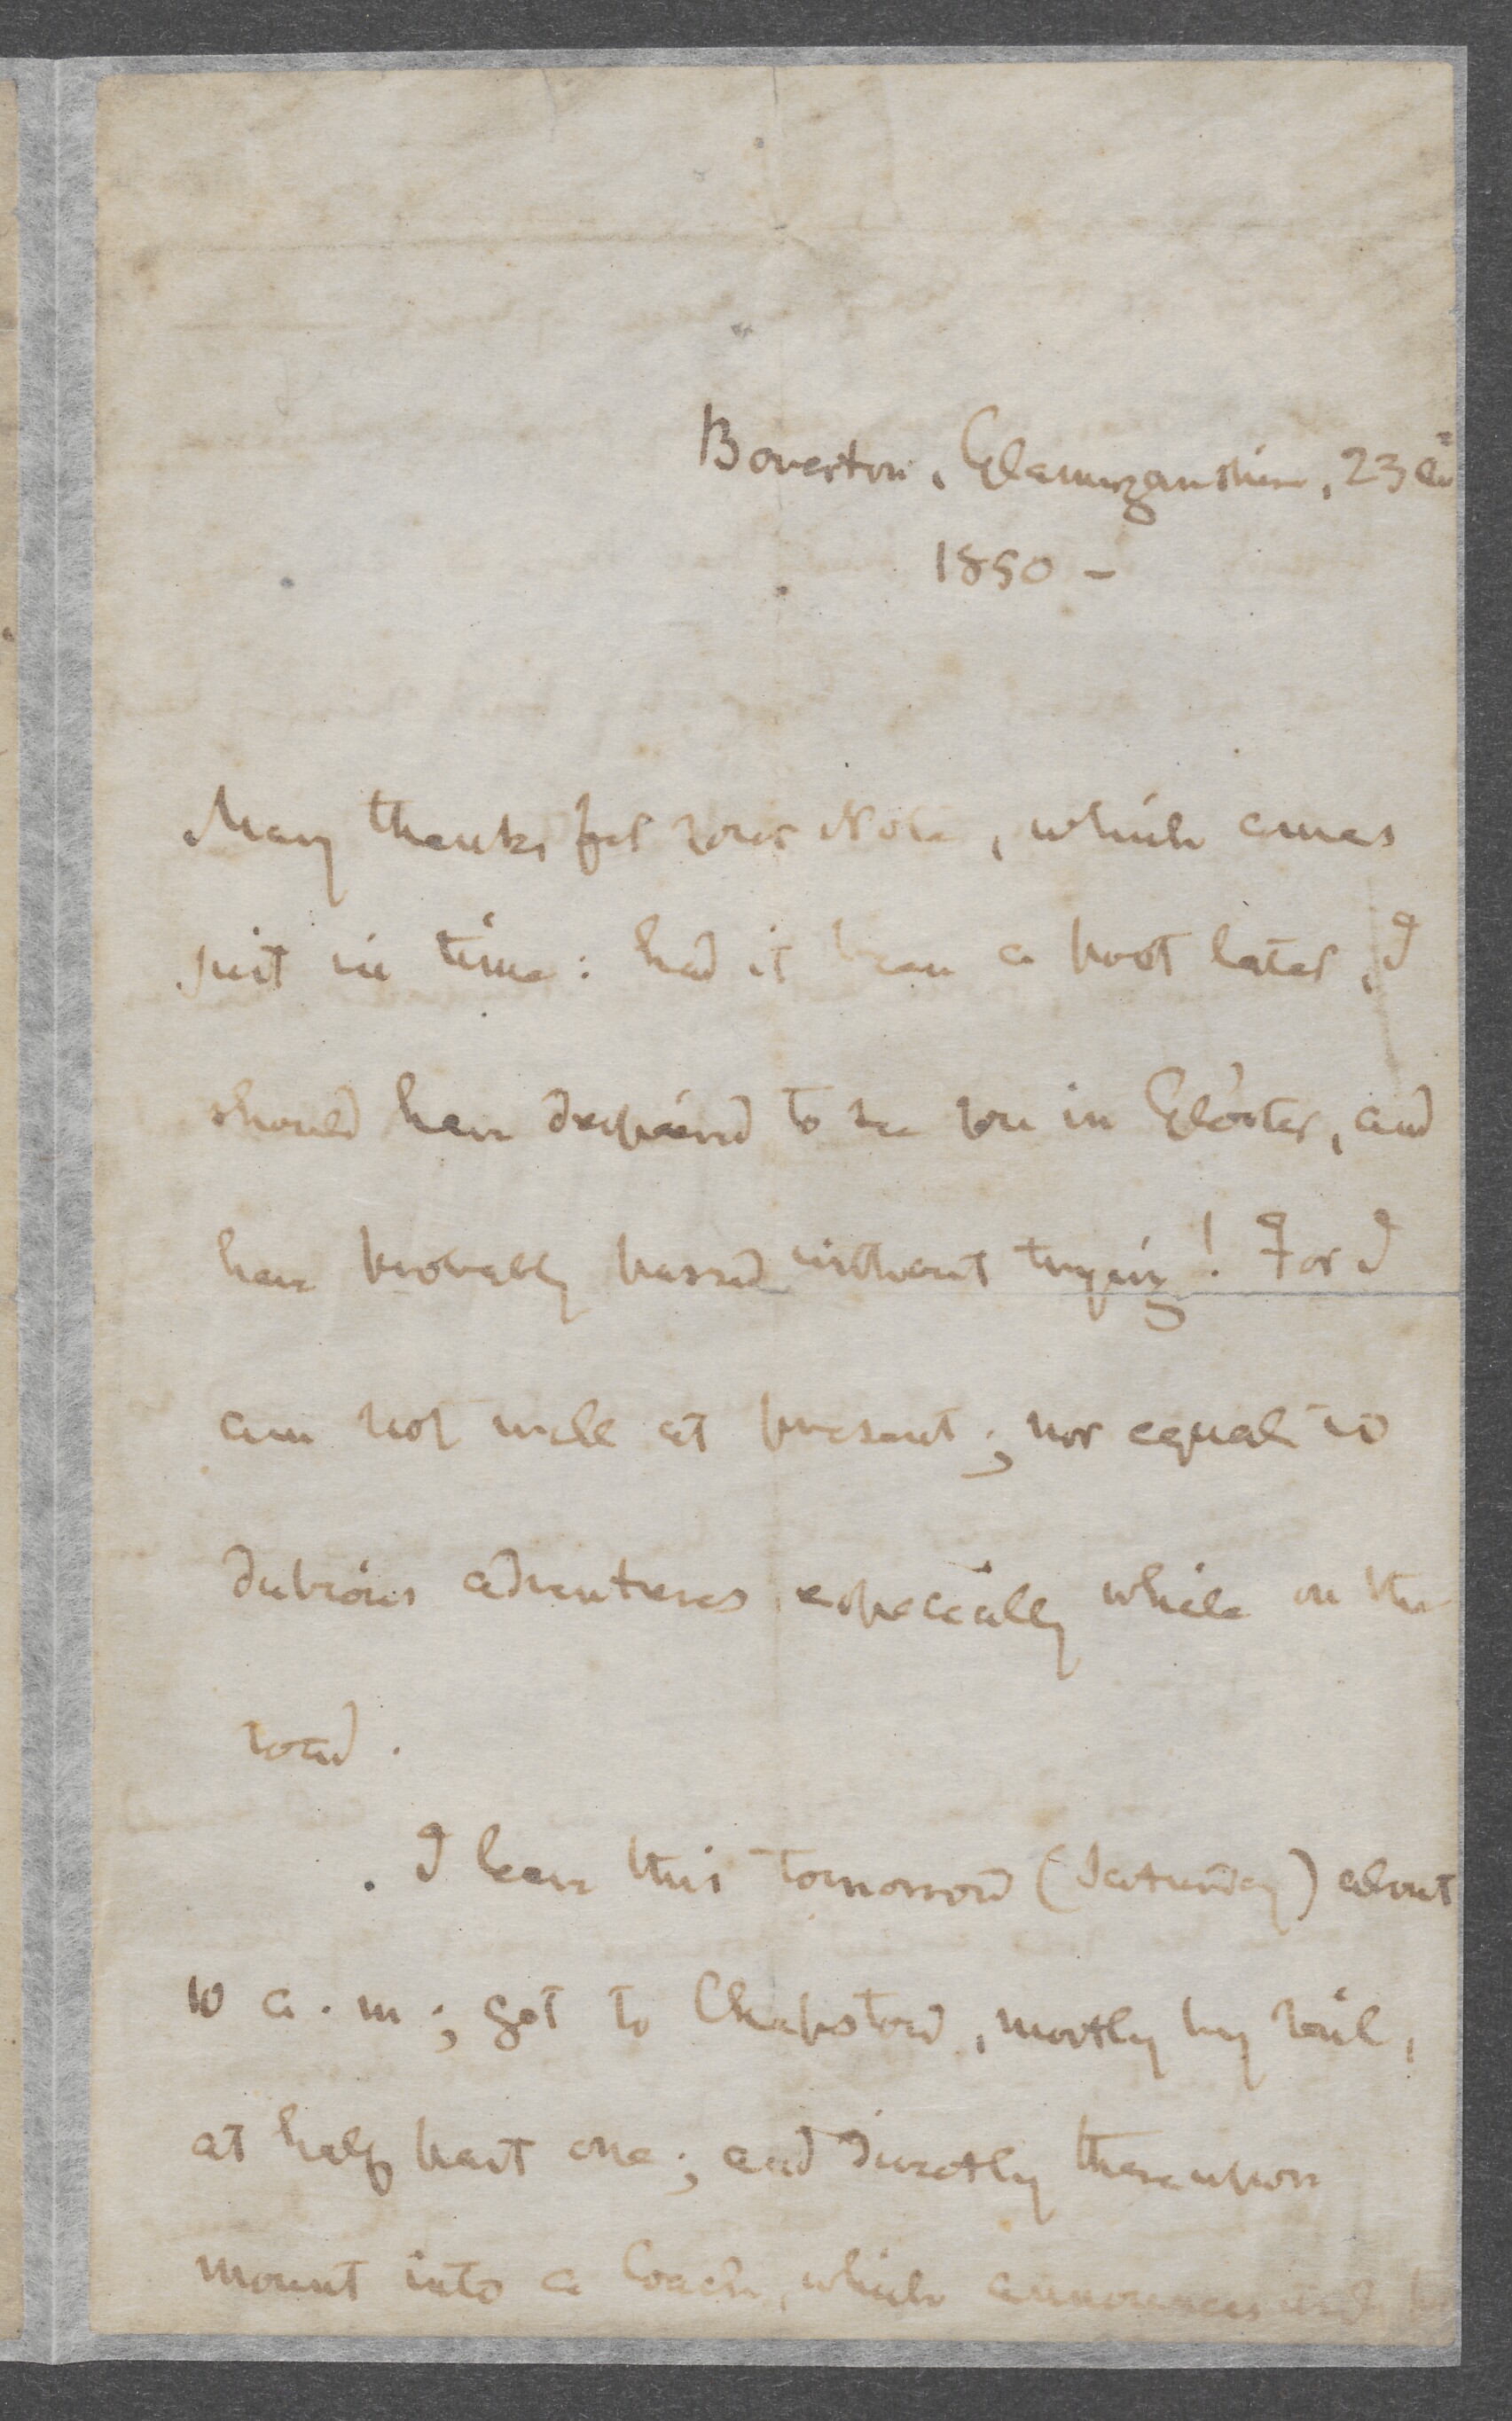 Boverton, Glamorganshire, 23 Au
1850 –
Many thanks for your Note, which comes
just in time: had it been a post later, I
should have despaired to see you in Glo'ster, and
have probably passed without trying! For I
am not well at present; nor equal to
dubious adventures especially while on the
road.
I leave this tomorrow (Saturday) about
10 a.m; get to Chepstow, mostly by rail,
at half past one; and directly thereupon
mount into a Coach, which announces itself